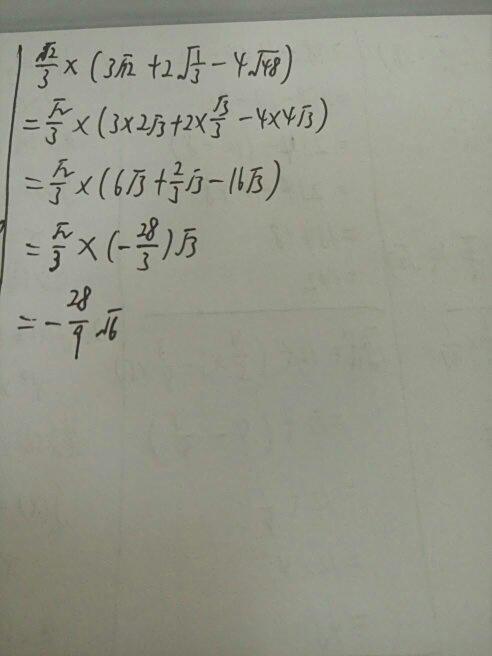 √2/3 × (3√12 + 2√1/3 - 4√48)
= √2/3 × (3×2√3 + 2×√3/3 - 4×4√3)
= √2/3 × (6√3 + 2/3√3 - 16√3)
= √2/3 × (-28/3)√3
= -28/9 √6